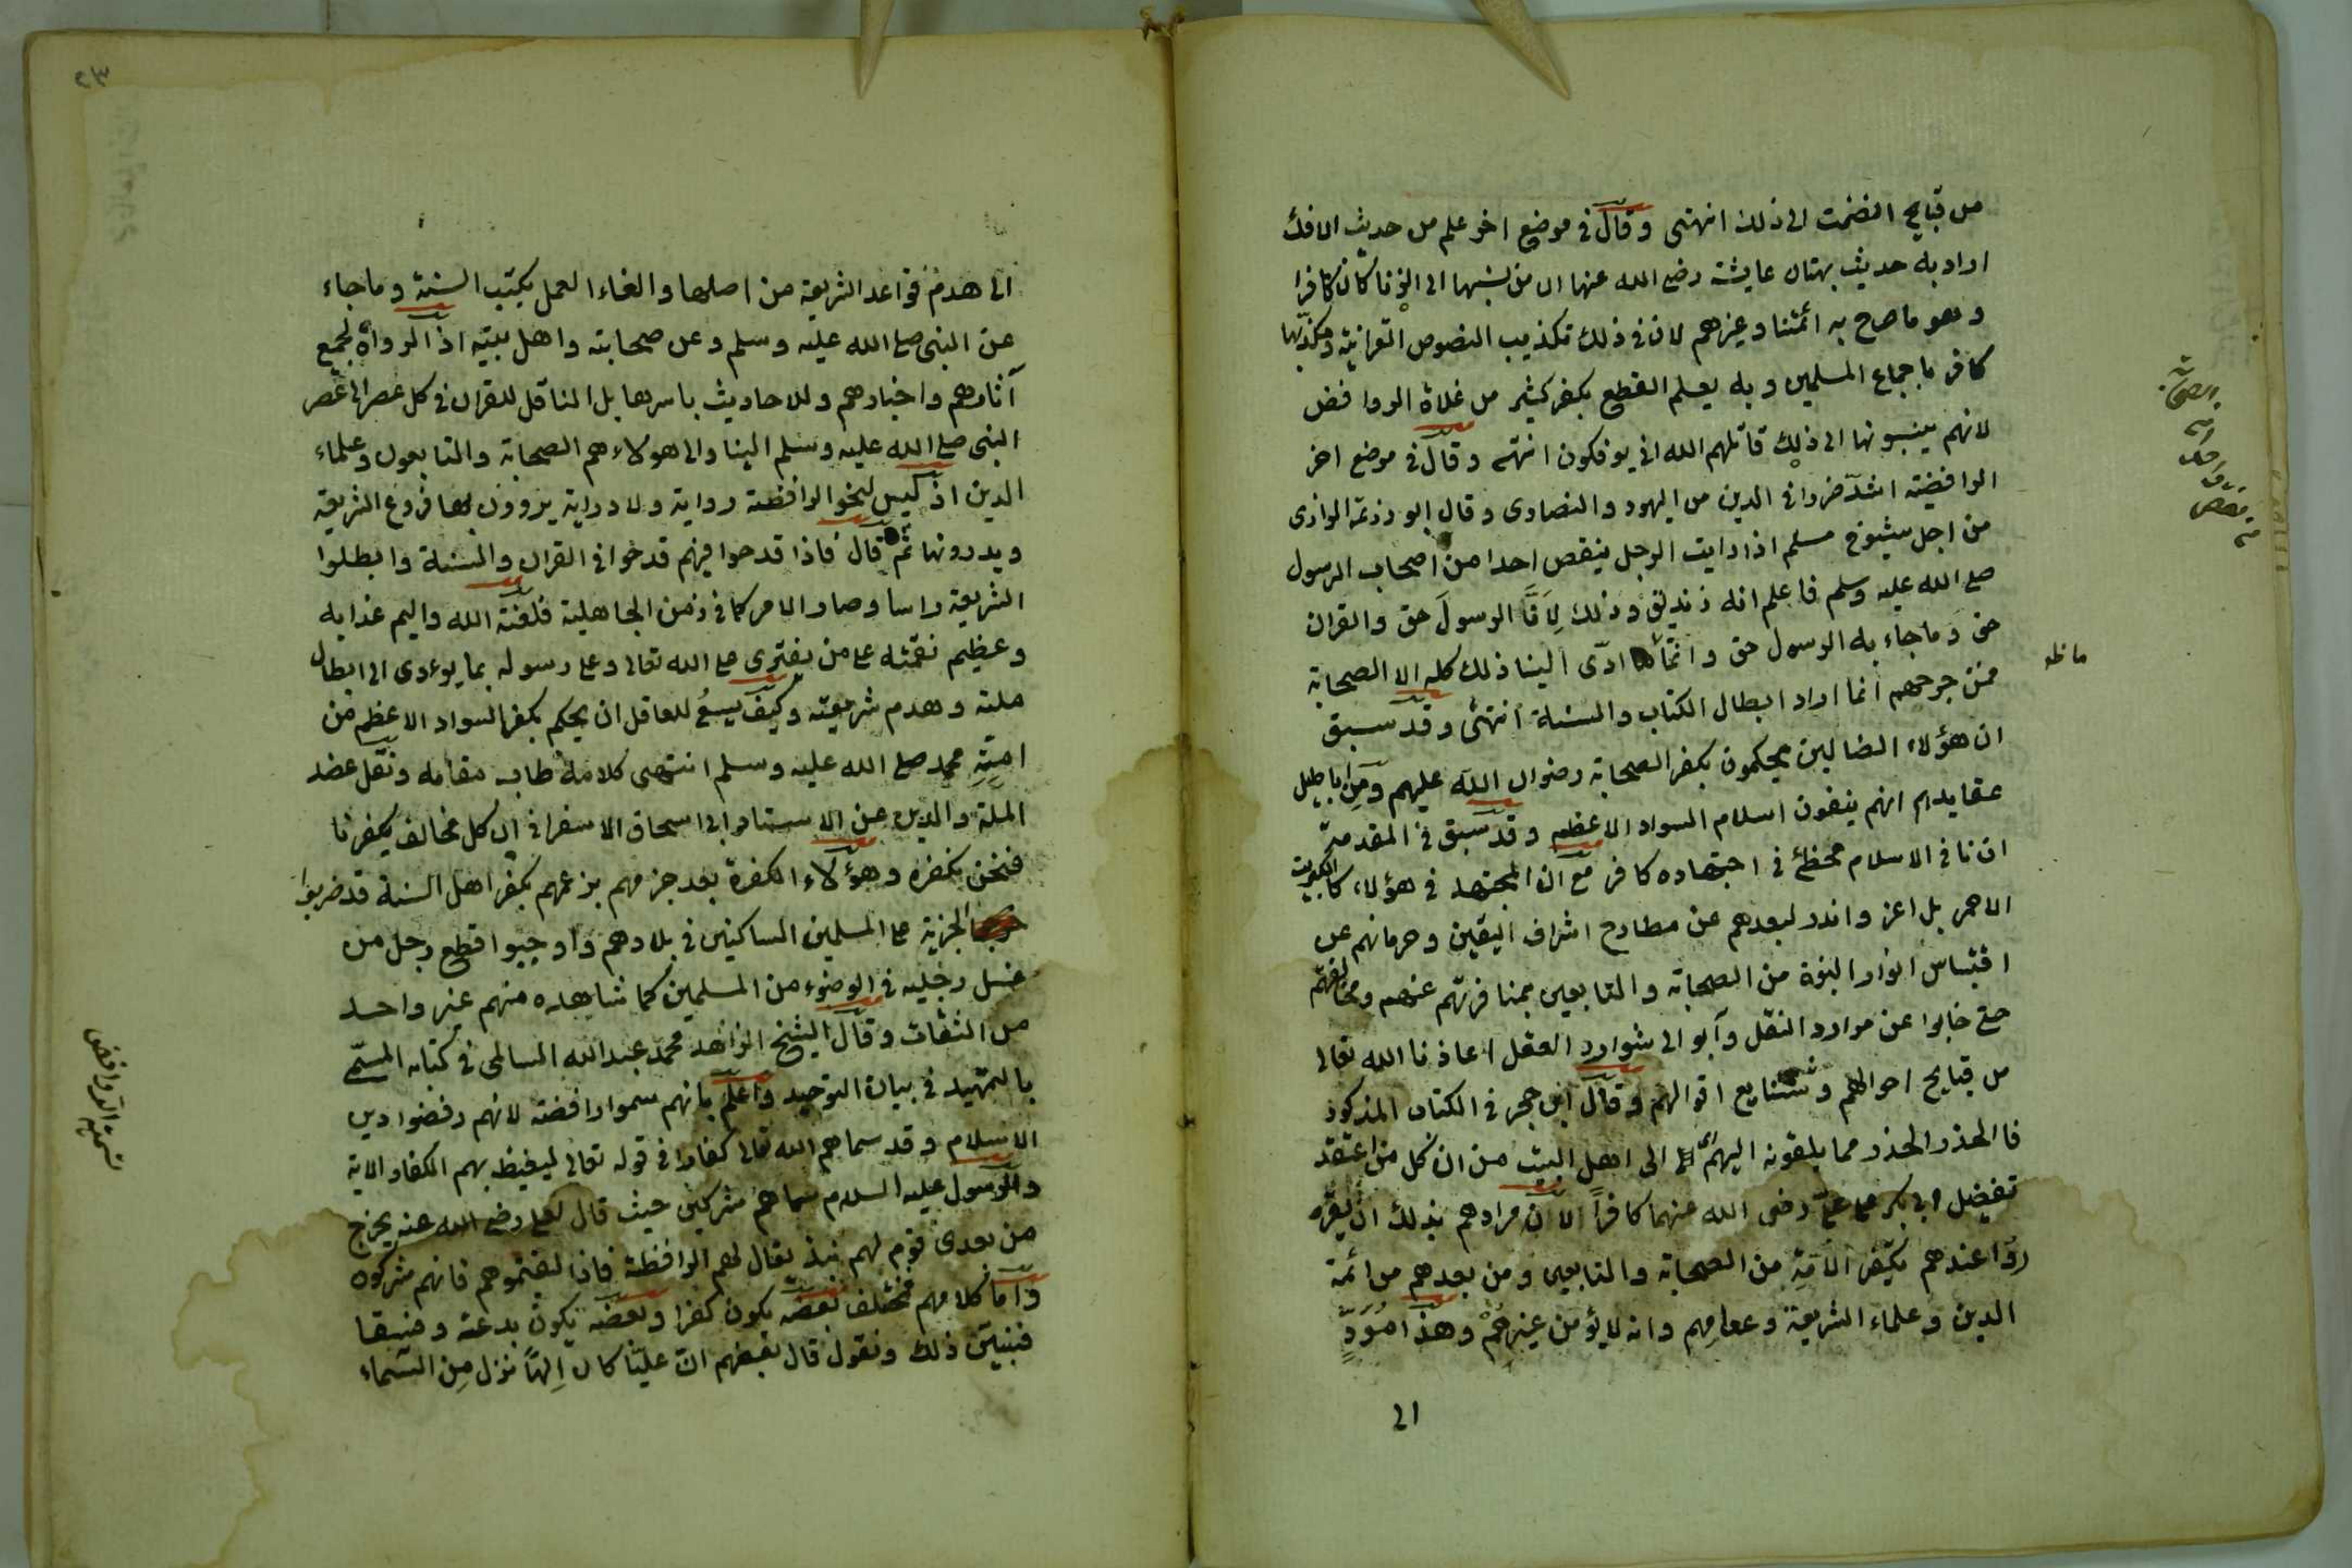 من قبايح انضمت الى ذلك انتهى وقال فى موضع اخر علم من حديث الافك
اراد به حديث بهتان عايشة رضى الله عنها ان من نسبها الى الزنا كان كافرا
وهو ما صرح به ائمتنا وغيرهم لان فى ذلك تكذيب النصوص القرانية ومكذبها
كافر باجماع المسلمين وبه يعلم القطع بكفر كثير من غلاة الروافض
لانهم ينسبونها الى ذلك قاتلهم الله انى يوفكون انتهى وقال فى موضع اخر
الرافضة اشدّ ضررا فى الدين من اليهود والنصارى وقال ابو زرعة الرازى
من اجل شيوخ مسلم اذا رايت الرجل ينقص احدا من اصحاب الرسول
صلى الله عليه وسلم فاعلم انه زنديق وذلك لِاَنَّ الرسولَ حق والقران
حق وما جاء به الرسول حق وانما ادّى الينا ذلك كله الا الصحابة
فمن جرحهم انما اراد ابطال الكتاب والسنة انتهى وقد سبق
ان هؤلاء الضالين يحكمون بكفر الصحابة رضوان الله عليهم ومن اباطيل
عقايدهم انهم ينفون اسلام السواد الاعظم وقد سبق فى المقدمة
ان نافى الاسلام مخطئ فى اجتهاده كافر مع ان المجتهد فى هؤلاء كالكبريت
الاحمر بل اعز واندر لبعدهم عن مطارح اشراف اليقين وحرمانهم عن
اقتباس انوار النبوة من الصحابة والتابعين بمنافرتهم عنهم ومخالفتهم
حتى خابوا عن موارد النقل وآبوا الى شوارد العقل اعاذنا الله تعالى
من قبايح احوالهم وشنايع اقوالهم وقال ابن حجر فى الكتاب المذكور
فالحذر الحذر مما يلقونه اليهم اى الى اهل البيت من ان كل من اعتقد
تفضيل ابى بكر على علىّ رضى الله عنهما كافراً لان مرادهم بذلك ان يقرّ
روا عندهم تكفير الامّةِ من الصحابة والتابعين ومن بعدهم من ائمة
الدين وعلماء الشريعة وعوامهم وانه لا يؤمن غيرهُمْ وهذا مُؤَدٍّ
الى
ما ظ
الى هدم قواعد الشريعة من اصلها والغاء العمل بكتب السنة وما جاء
عن النبى صلى الله عليه وسلم وعن صحابته واهل بيته اذ الرواة لجميع
آثارهم واخبارهم وللاحاديث باسرها بل الناقل للقران فى كل عصر الى عصر
النبى صلى الله عليه وسلم الينا والى هولاء هم الصحابة والتابعون وعلماء
الدين اذ ليس لنحو الرافضة رواية ولا دراية يروون بها فروع الشريعة
ويدرونها ثم قال فاذا قدحوا فيهم قدحوا فى القران والسنة وابطلوا
الشريعة راسا وصار الامر كما فى زمن الجاهلية فلعنة الله واليم عذابه
وعظيم نقمته على من يفترى على الله تعالى وعلى رسوله بما يوءدى الى ابطال
ملته وهدم شريعته وكيف يسعُ للعاقل ان يحكم بكفر السواد الاعظم من
امةِ محمد صلى الله عليه وسلم انتهى كلامه طاب مقامه ونقل عضد
الملة والدين عن الاستاد ابى اسحاق الاسفرانى ان كل مخالف يكفرنا
فنحن نكفره وهؤلاء الكفرة بعد جزمهم بزعمهم بكفر اهل السنة قد ضربوا
الجزية على المسلمين الساكنين فى بلادهم واوجبوا قطع رجل من
غسل رجليه فى الوضوء من المسلمين كما شاهده منهم غير واحد
من الثقات وقال الشيخ الزاهد محمد عبد الله السالمى فى كتابه المسمّى
بالتمهيد فى بيان التوحيد واعلم بانهم سموا رافضة لانهم رفضوا دين
الاسلام وقد سماهم الله تعالى كفارا فى قوله تعالى ليغيظ بهم الكفار الاية
والرسول عليه السلام سماهم مشركين حيث قال لعلى رضى الله عنه يخرج
من بعدى قوم لهم نبذ يقال لهم الرافضة فاذا لقيتموهم فانهم مشركون
واما كلامهم مختلف بعضه يكون كفرا وبعضه يكون بدعة وفسقا
فنبيّن ذلك ونقول قال بعضهم انّ عليّا كان اِلهًا نزل مِن السّماء
تسمية الروافض